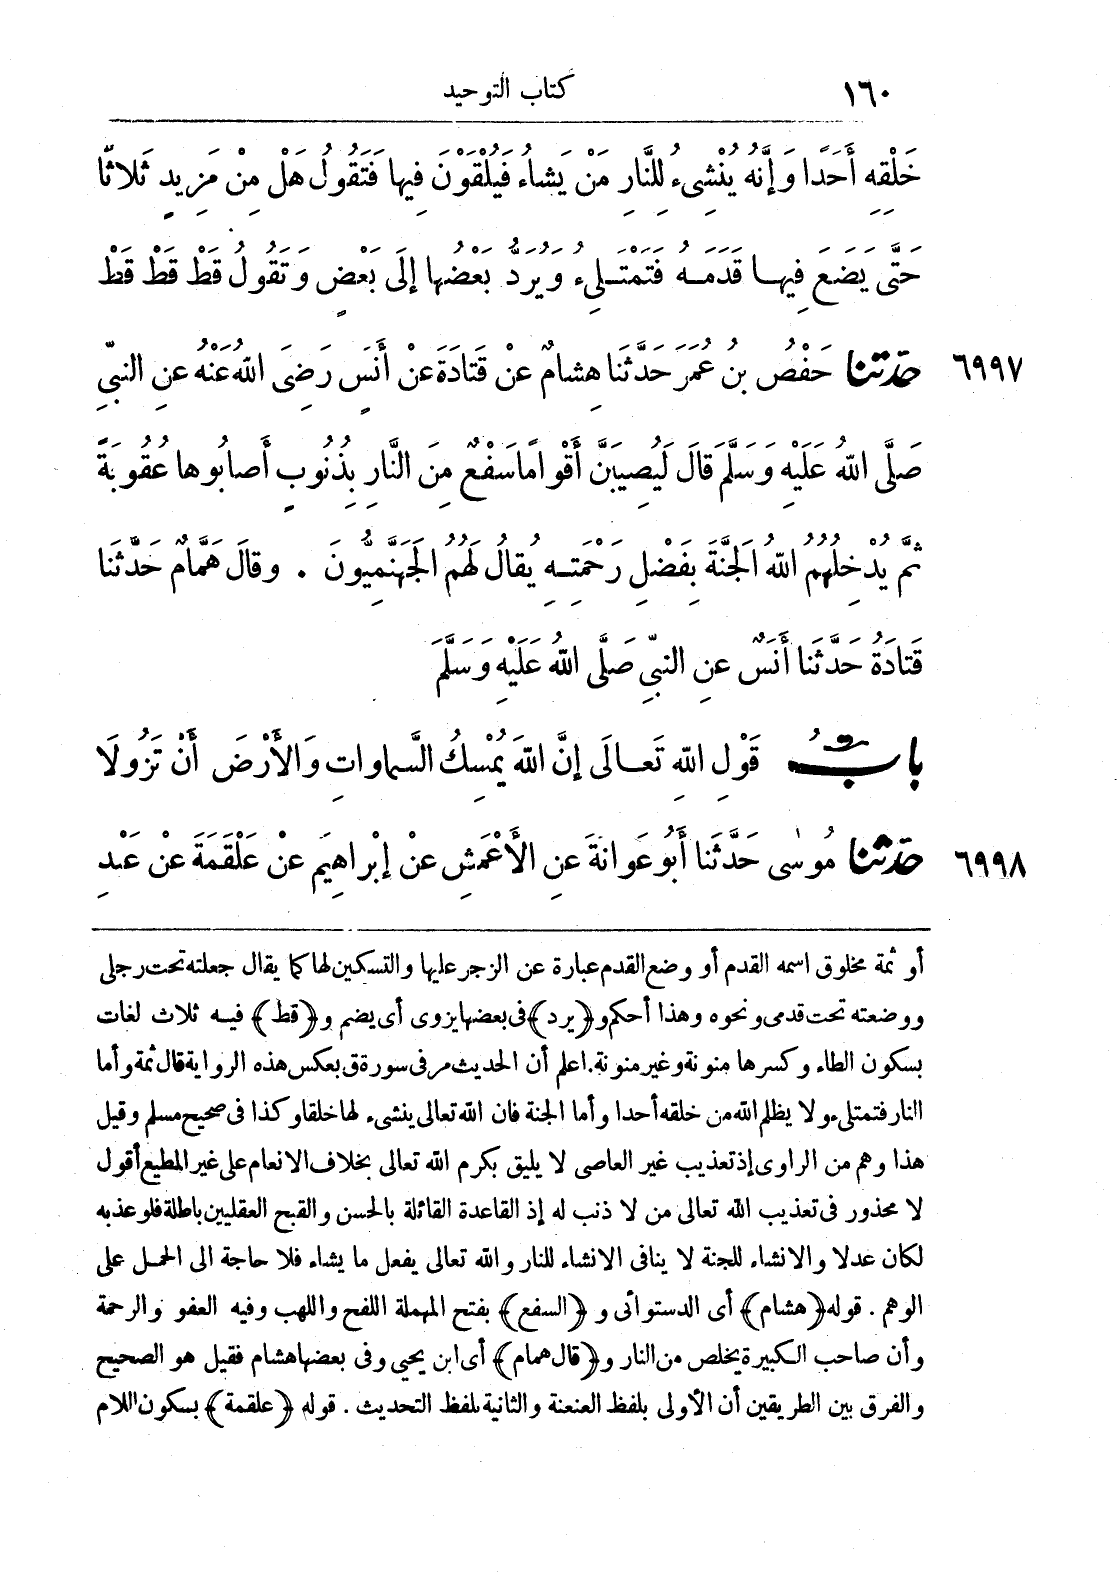 ١٦٠ كتاب التوحيد
خَلْقِهِ أَحَدًا وَإِنَّهُ يُنْشِىءُ لِلنَّارِ مَنْ يَشَاءُ فَيُلْقَوْنَ فِيهَا فَتَقُولُ هَلْ مِنْ مَزِيدٍ ثَلَاثًا
حَتَّى يَضَعَ فِيهَا قَدَمَهُ فَتَمْتَلِىءُ وَيُرَدُّ بَعْضُهَا إِلَى بَعْضٍ وَتَقُولُ قَطْ قَطْ قَطْ
٦٩٩٧ حَدَّثَنَا حَفْصُ بنُ عُمَرَ حَدَّثَنَا هِشَامٌ عَنْ قَتَادَةَ عَنْ أَنَسٍ رَضِىَ اللهُ عَنْهُ عَنِ النَّبِيِّ
صَلَّى اللهُ عَلَيْهِ وَسَلَّمَ قَالَ لَيُصِيبَنَّ أَقْوَامًا سَفْعٌ مِنَ النَّارِ بِذُنُوبٍ أَصَابُوهَا عُقُوبَةً
ثُمَّ يُدْخِلُهُمُ اللهُ الْجَنَّةَ بِفَضْلِ رَحْمَتِهِ يُقَالُ لَهُمُ الْجَهَنَّمِيُّونَ . وقَالَ هَمَّامٌ حَدَّثَنَا
قَتَادَةُ حَدَّثَنَا أَنَسٌ عَنِ النَّبِيِّ صَلَّى اللهُ عَلَيْهِ وَسَلَّمَ
بَابُ قَوْلِ اللهِ تَعَالَى إِنَّ اللهَ يُمْسِكُ السَّمَاوَاتِ وَالْأَرْضَ أَنْ تَزُولَا
٦٩٩٨ حَدَّثَنَا مُوسَى حَدَّثَنَا أَبُو عَوَانَةَ عَنِ الْأَعْمَشِ عَنْ إِبْرَاهِيمَ عَنْ عَلْقَمَةَ عَنْ عَبْدِ
أو ثمة مخلوق اسمه القدم أو وضع القدم عبارة عن الزجر عليها والتسكين لها كما يقال جعلته تحت رجلى
ووضعته تحت قدمى ونحوه وهذا أحكم و ﴿يرد﴾ فى بعضها يزوى أى يضم و ﴿قط﴾ فيه ثلاث لغات
بسكون الطاء وكسرها منونة وغير منونة . اعلم أن الحديث مر فى سورة ق بعكس هذه الرواية قال ثمة وأما
النار فتمتلىء ولا يظلم الله من خلقه أحدا وأما الجنة فان الله تعالى ينشىء لها خلقا وكذا فى صحيح مسلم وقيل
هذا وهم من الراوى إذ تعذيب غير العاصى لا يليق بكرم الله تعالى بخلاف الانعام على غير المطيع أقول
لا محذور فى تعذيب الله تعالى من لا ذنب له إذ القاعدة القائلة بالحسن والقبح العقليين باطلة فلو عذبه
لكان عدلا والانشاء للجنة لا ينافى الانشاء للنار والله تعالى يفعل ما يشاء فلا حاجة الى الحمل على
الوهم . قوله ﴿هشام﴾ أى الدستوائى و ﴿السفع﴾ بفتح المهملة اللفح واللهب وفيه العفو والرحمة
وأن صاحب الكبيرة يخلص من النار و ﴿قال همام﴾ أى ابن يحيى وفى بعضها هشام فقيل هو الصحيح
والفرق بين الطريقين أن الأولى بلفظ العنعنة والثانية بلفظ التحديث . قوله ﴿علقمة﴾ بسكون اللام